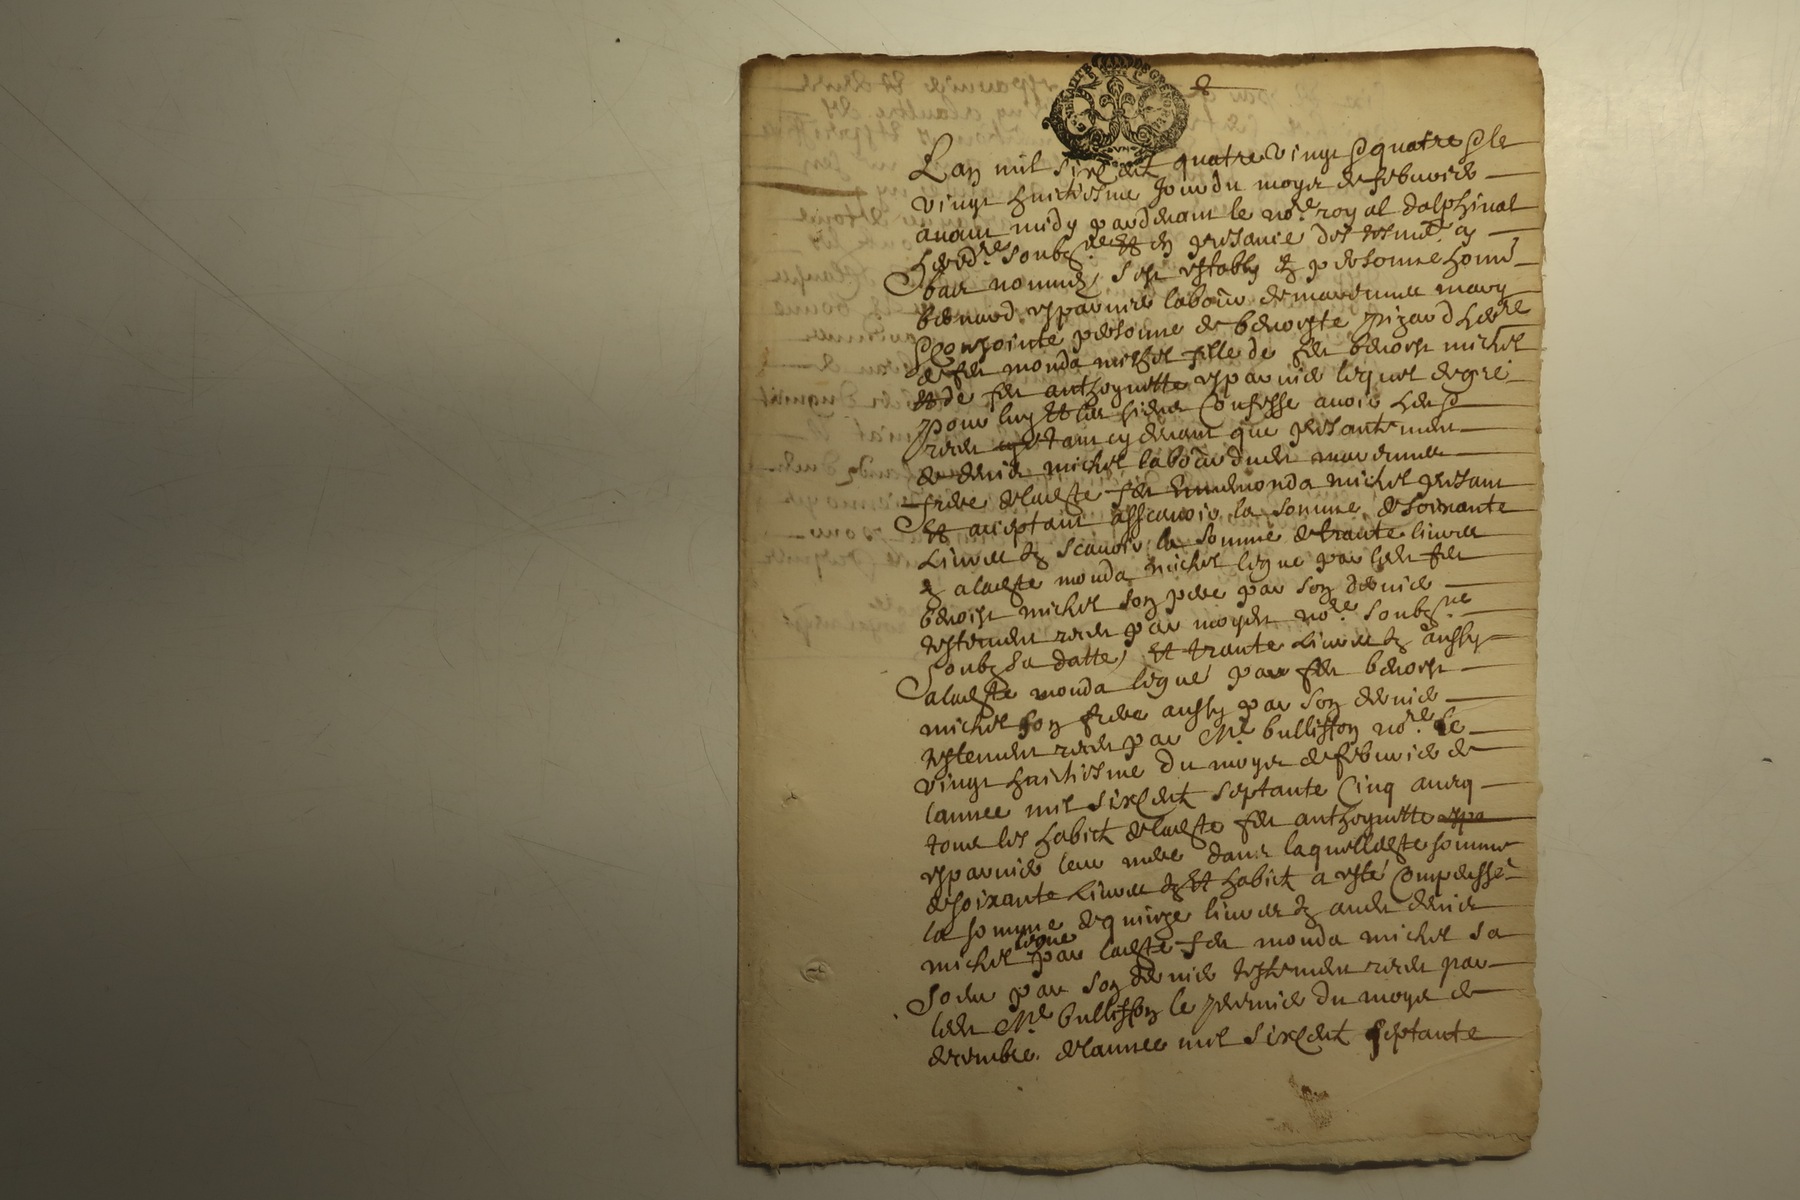 GENERALITE DE GRENOBLE
Lan mil six cent quatre vingt quatre & le
vingt huictiesme Jour du moys de febvrier
avant midy par devant le no.re royal dalphinal
soubz.né & en presance des tesm.
bas nommez, sest estably en personne hon.
bernard esparvier labour de marenne mary
& conjointe personne de benoiste pizard
de feu monda michel fille de feu benoist michel
& de feu anthoynette esparvier lequel de gre
pour luy & les siens Confesse avoir heu &
receu tant cy devant que presantement
de denis michel labour dudit marenne
frere de ladte feu monda michel presant
& acceptant assavoir la somme de soixante
Livres scavoir la somme de trante livres
a ladte monda michel legue par ledit feu
benoist michel son pere par son dernier
testement receu par moydit no.re soubz.né
soubz sa datte, & trante Livres aussy
a ladte monda legue par feu benoist
michel son frere aussy par son dernier
testement receu par M.e bullisson no.re le
vingt huictiesme du moys de febvrier de
lannee mil six cent septante Cinq avecq
tous les habitz de ladte feu anthoynette
esparvier leur mere dans laquelle dte somme
de soixante Livres & habitz a esté Compensse
la somme de quinze livres audit denis
michel legue par ladte feu monda michel sa
soeur par son dernier testement receu par
ledit M.e bullisson le premier du moys de
decembre de lannee mil six cent septante